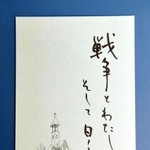 戦争とわたし
そして日